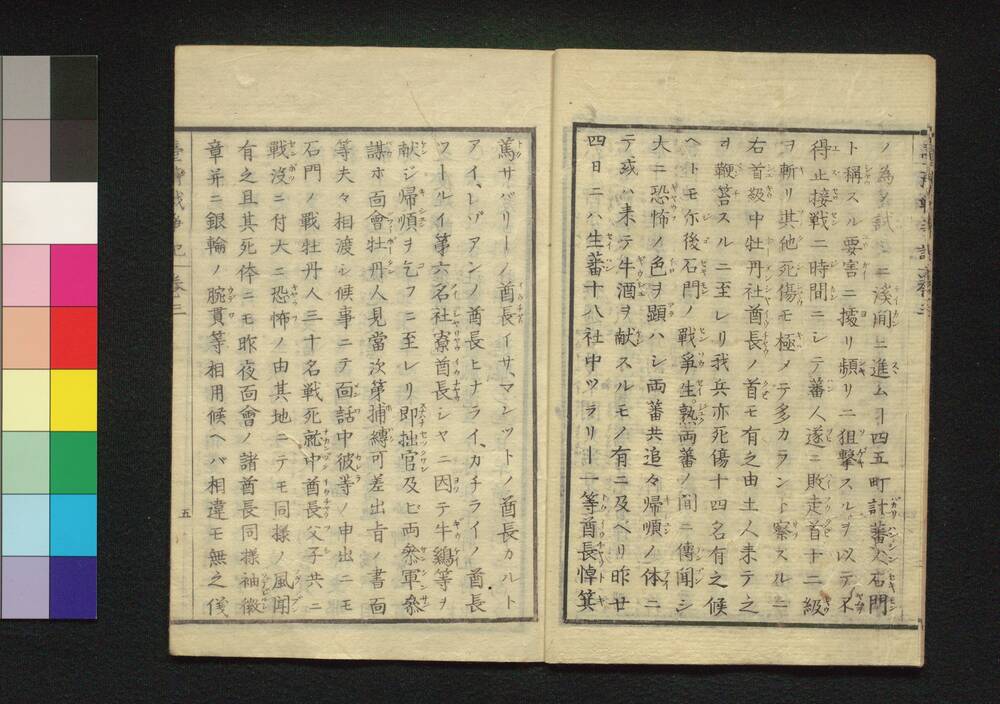 ノ為〆試ミニ渓間ニ進ムヿ四五町計蕃人石門
ト稱スル要害ニ據リ頻リニ狙撃スルヲ以テ不
得止接戦二時間ニシテ蕃人遂ニ敗走首十二級
ヲ斬リ其他死傷モ極メテ多カラント察スルニ
右首級中牡丹社酋長ノ首モ有之由土人来テ之
ヲ鞭笞スルニ至レリ我兵亦死傷十四名有之候
ヘトモ尓後石門ノ戦爭生熟両蕃ノ間ニ傳聞シ
大ニ恐怖ノ色ヲ顕ハシ両蕃共追々帰順ノ体ニ
テ或ハ来テ牛酒ヲ献スルモノ有ニ及ベリ昨廿
四日ニハ生蕃十八社中ツラリー一等酋長悼箕
篤サバリーノ酋長イサ、マンツットノ酋長カルト
アイ、レゾアンノ酋長ヒナライ、カチライノ酋長
ワールイ第六名社寮酋長シヤニ因テ牛鶏等ヲ
献ジ帰順ヲ乞フニ至レリ即拙官及ヒ両叅軍叅
謀ホ面會牡丹人見當次第捕縛可差出旨ノ書面
等夫々相渡シ候事ニテ面話中彼等ノ申出ニモ
石門ノ戦牡丹人三十名戦死就中酋長父子共ニ
戦没ニ付大ニ恐怖ノ由其地ニテモ同様ノ風聞
有之且其死体ニモ昨夜面會ノ諸酋長同様袖徽
章并ニ銀輪ノ腕貫等相用候ヘバ相違モ無之儀
五